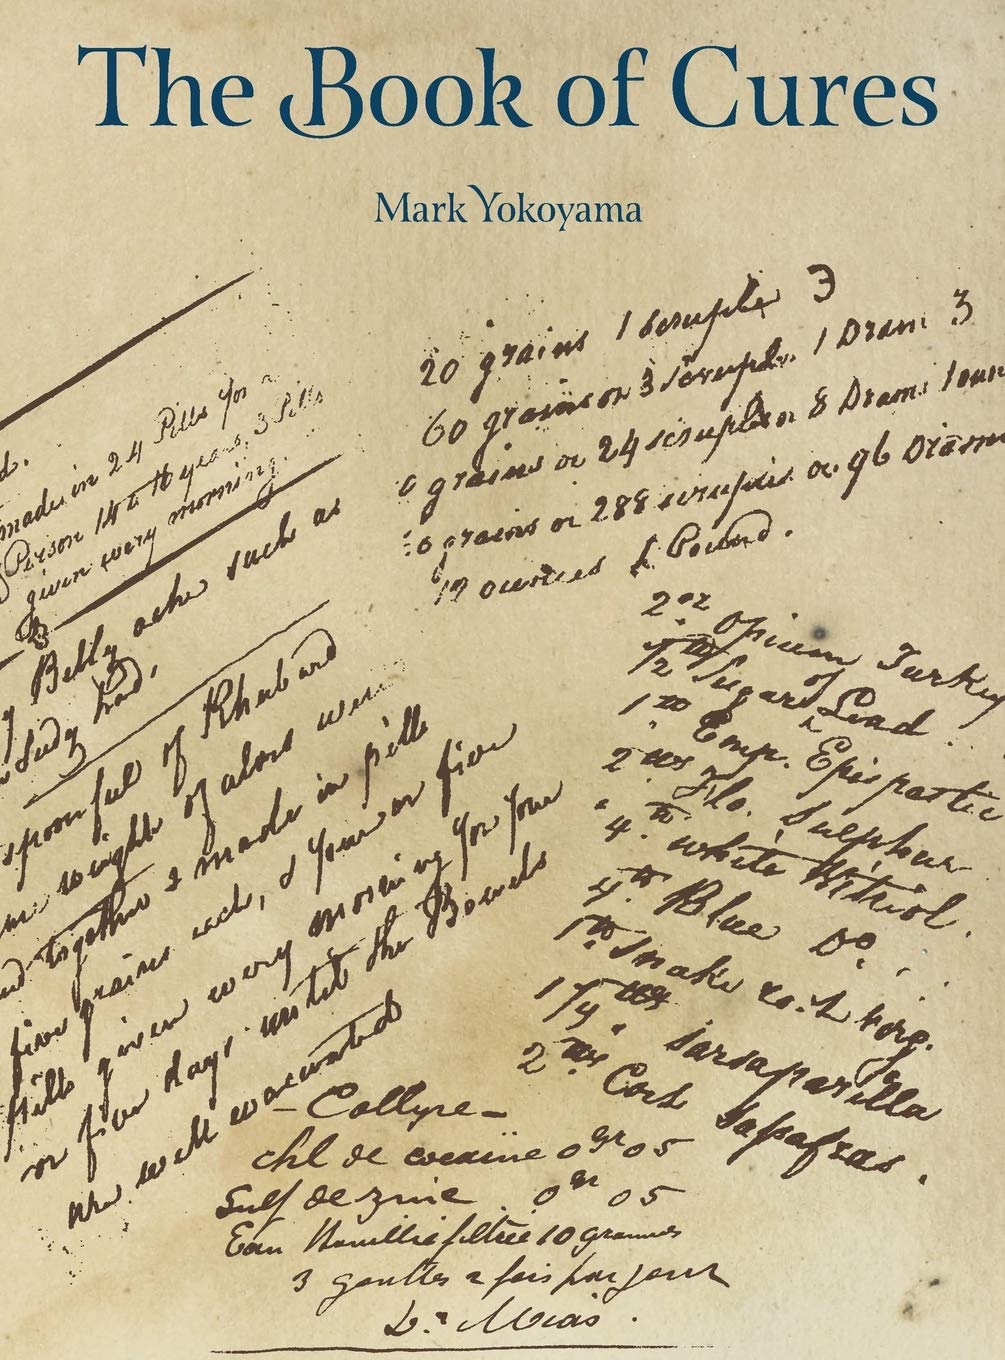 The Book of Cures
Mark Yokoyama
20 grains 1 scruple Э
60 grains or 3 scruples. 1 Dram 3
0 grains or 24 scruples or 8 Drams 1 oun
0 grains or 288 scruples or 96 Drams
12 ounces 1 Pound.
d.
made in 24 Pills for a
Person 14 to 16 years, 3 Pills
given every morning.
Belly ache such as
had.
spoonful of Rhubarb
weight of aloes
together & made in pills
five grains each, & four or five
pills given every morning for four
or five days until the Bowels
are well evacuated
2 oz Opium Turkey
1/2 lb Sugar of Lead
1 lb Emp. Epispastic
2 lbs Flo. Sulphur
4 lb white Vitriol.
4 lb Blue Do.
1 lb Snake root Virg.
1/4 " Sarsaparilla
2 lbs Cort Sasafras.
- Collyre -
chl de cocaine 0 gr 05
Sulf de zinc 0 gr 05
Eau bouillie filtrée 10 grammes
3 gouttes 2 fois par jour
Dr